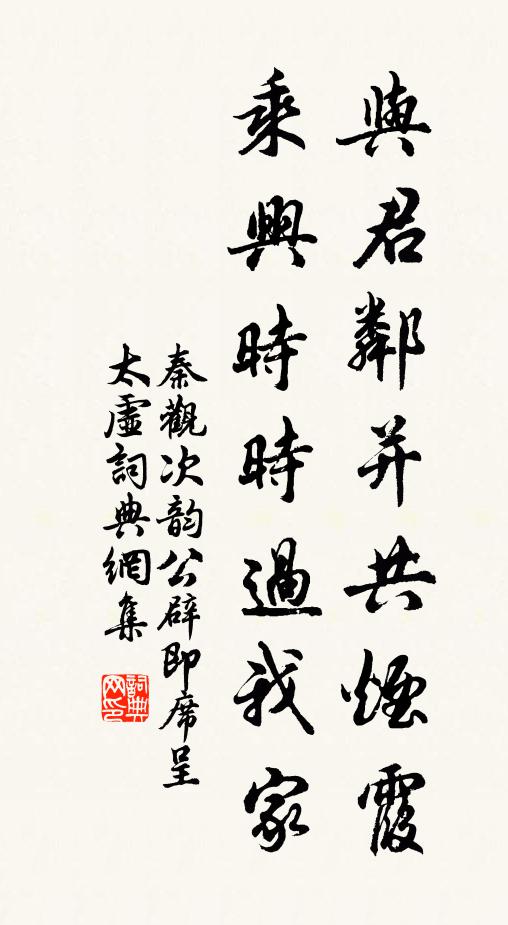 與君鄰并共煙霞
乘興時時過我家
秦觀次韵公辟即席呈
太虛詞典網集
詞典
网印